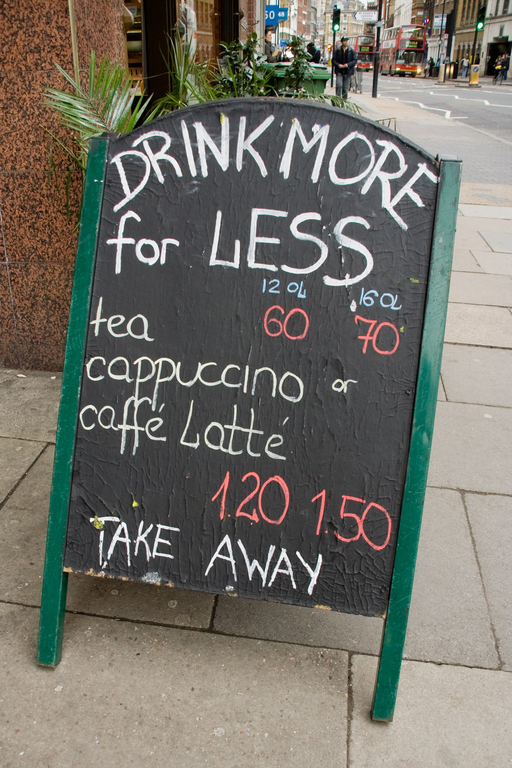 DRINK MORE
for LESS
12 OZ 16 OZ
tea 60 70
cappuccino or
caffé Latté
1.20 1.50
TAKE AWAY